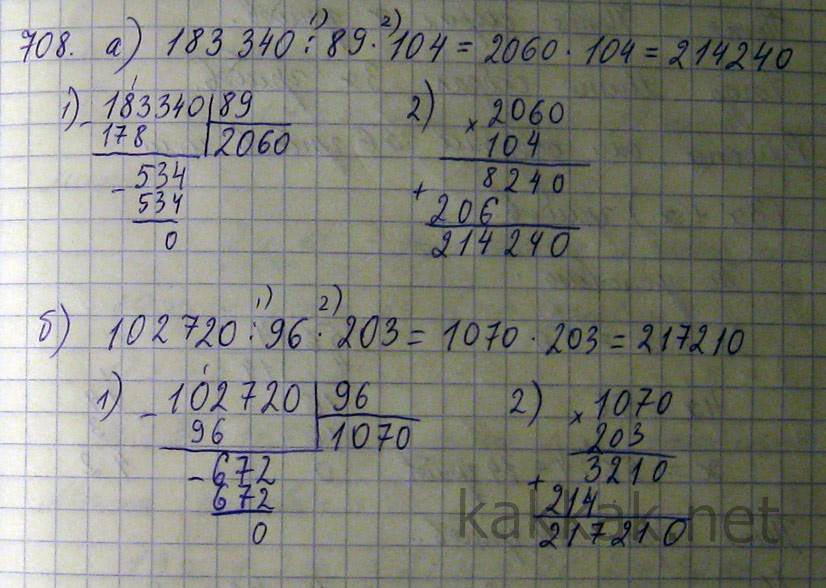 708. а) 183 340 : 89 · 104 = 2060 · 104 = 214240
1) 2)
1) 183340 89
- 178 2060
- 534
534
0
2) × 2060
104
+ 8240
206
214240
б) 102720 : 96 · 203 = 1070 · 203 = 217210
1) 2)
1) - 102720 96
96 1070
- 672
672
0
2) × 1070
203
+ 3210
214
217210
kakkak.net